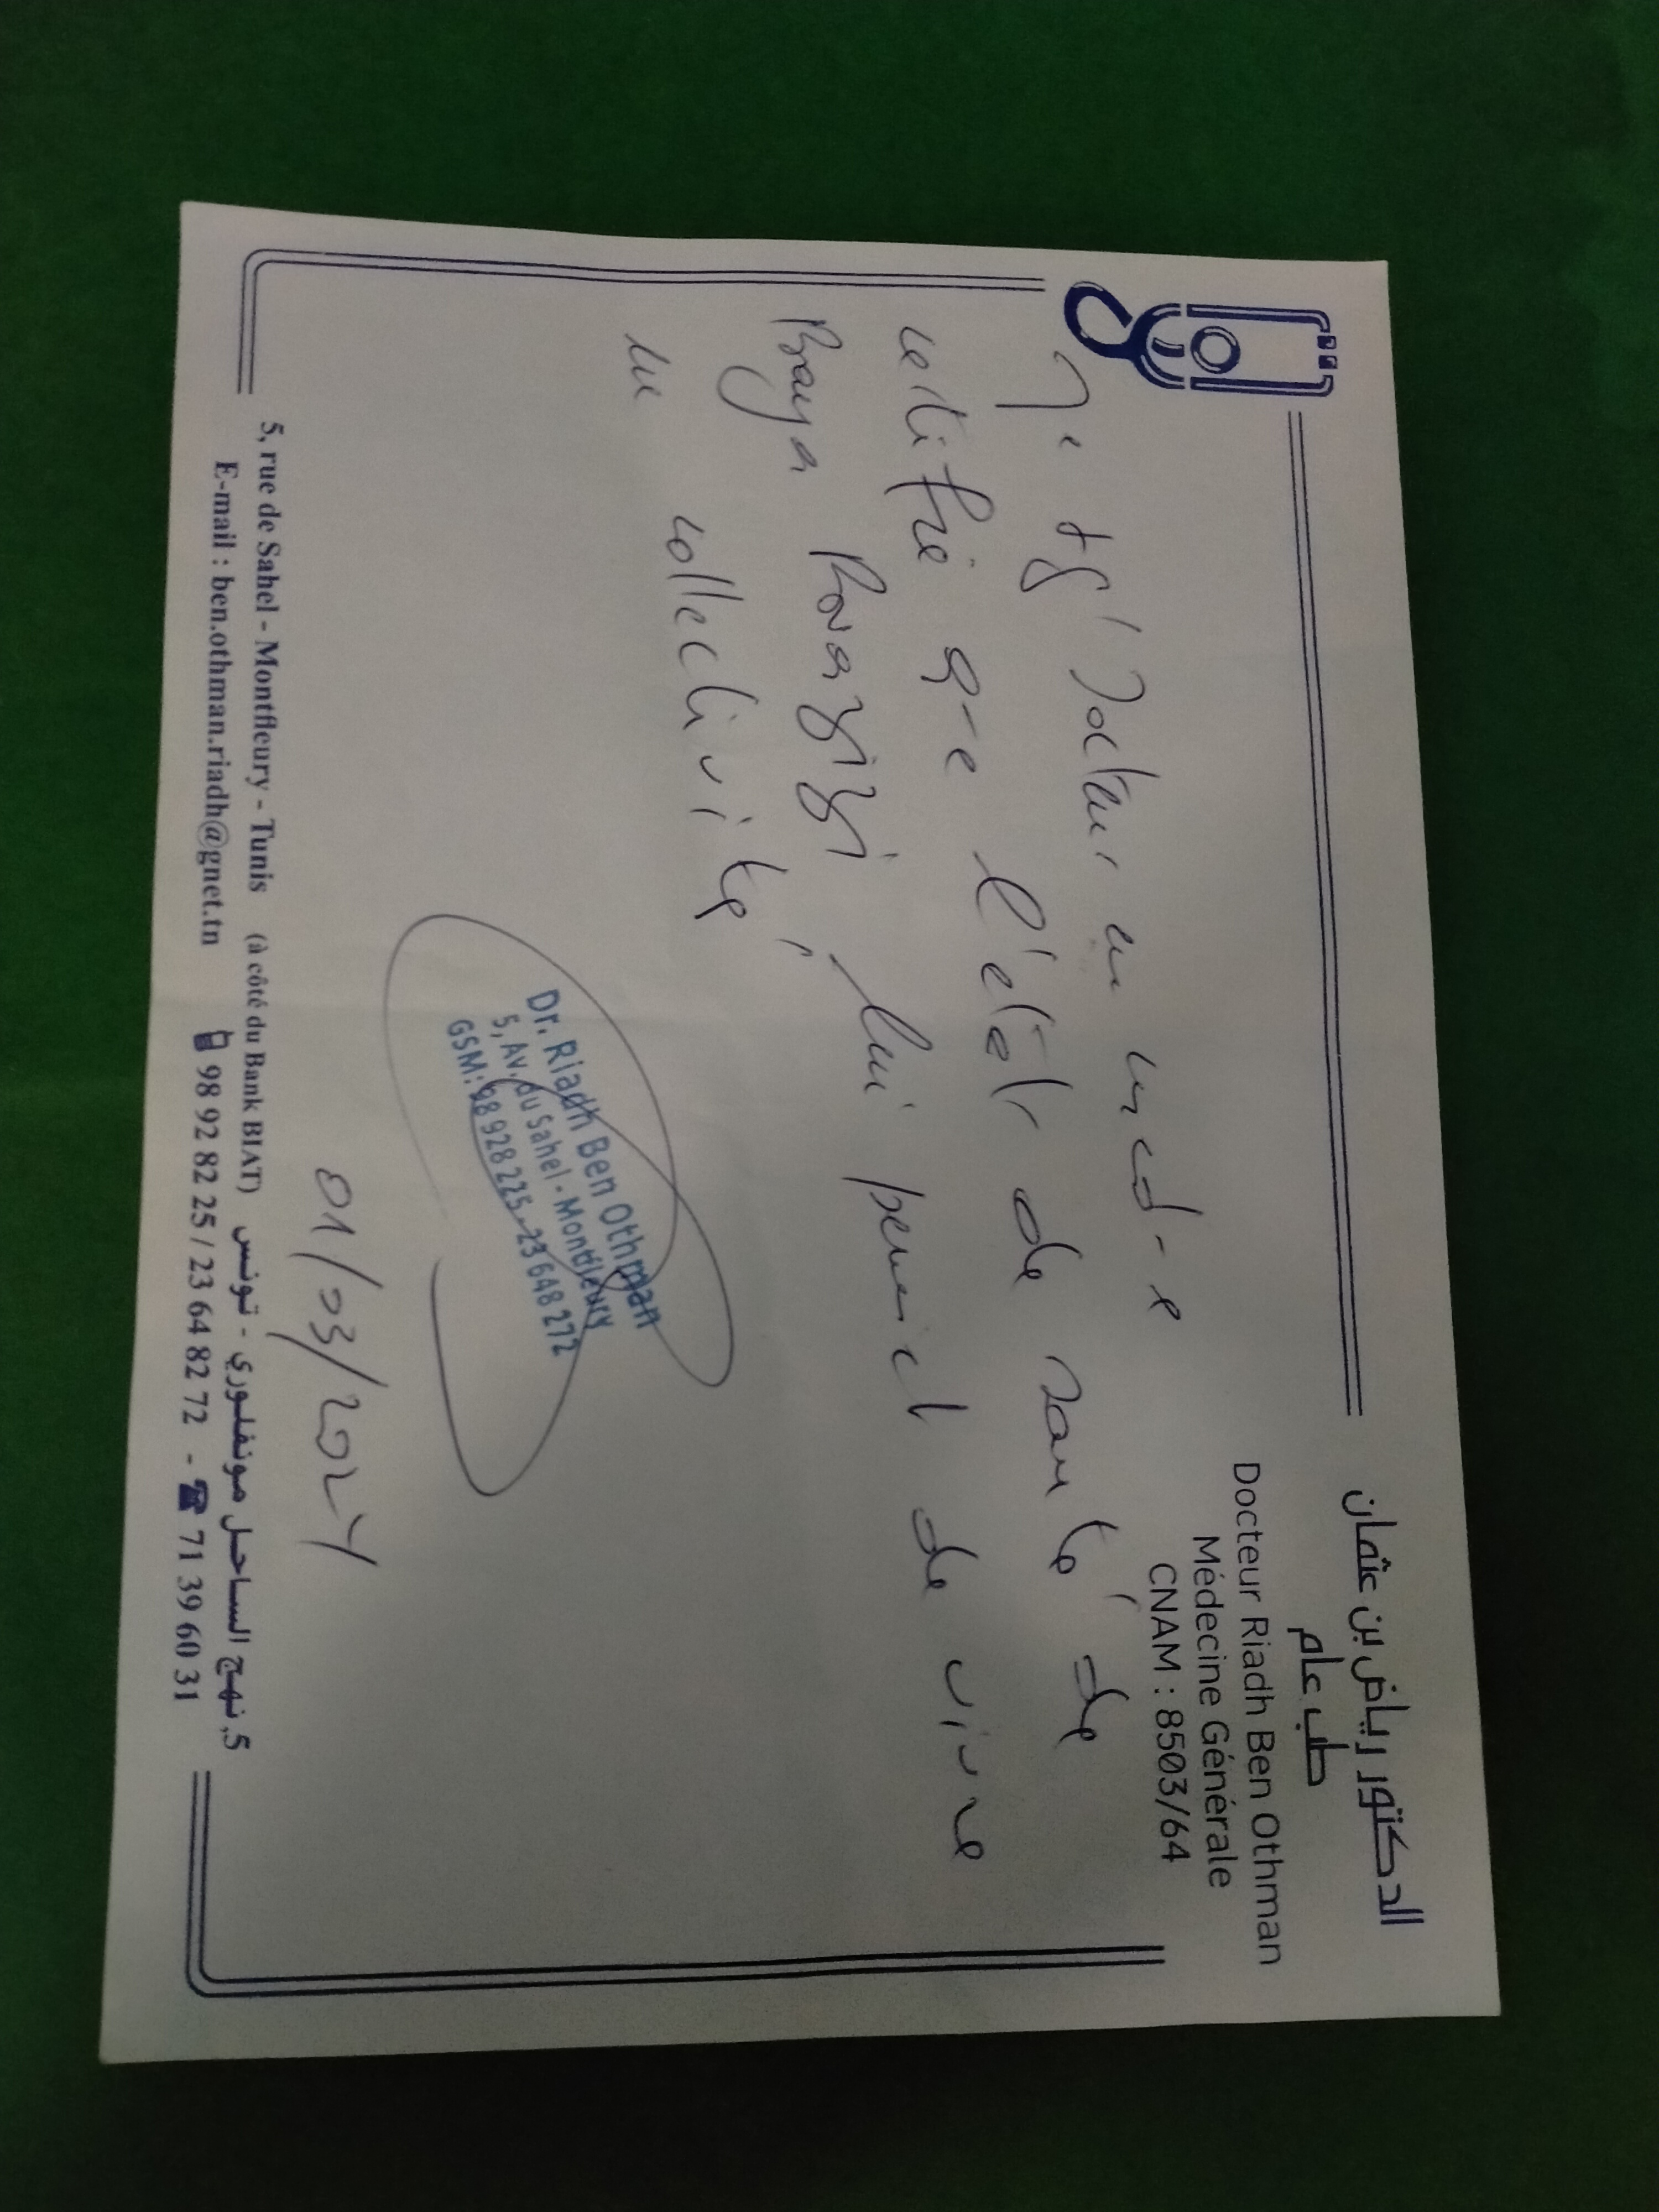 الدكتور رياض بن عثمان
طب عام
Docteur Riadh Ben Othman
Médecine Générale
CNAM : 8503/64
Je ssg' Docteur en médecine
certifie que l'état de santé de
Raya Bouazizi lui permet de vivre
en collectivité
Dr. Riadh Ben Othman
5, Av. du Sahel - Montfleury
GSM: 98 928 225 - 23 648 272
01/03/2024
5, rue de Sahel - Montfleury - Tunis (à côté du Bank BIAT) 5, نهج الساحل مونفلوري - تونس
E-mail : ben.othman.riadh@gnet.tn 98 92 82 25 / 23 64 82 72 - 71 39 60 31